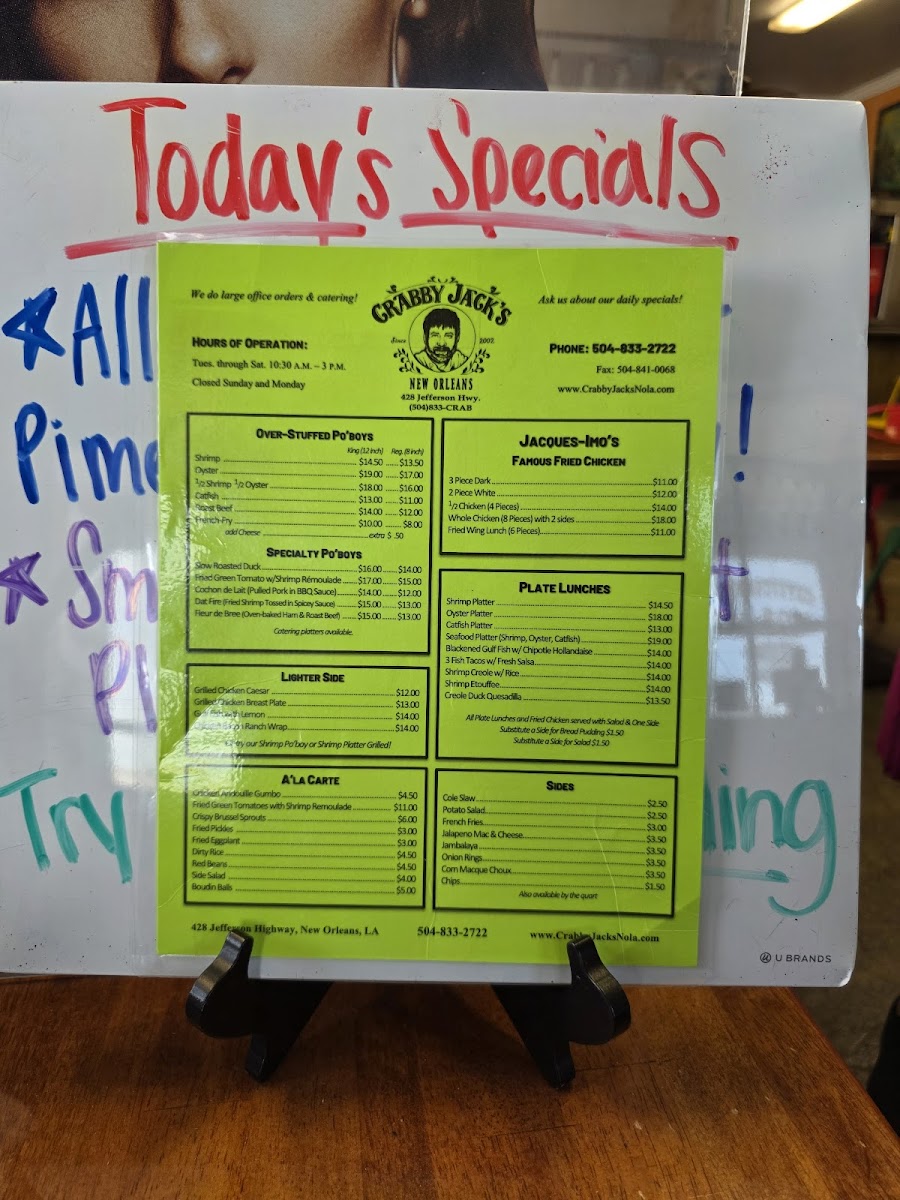 Today's Specials
All
Pime
!
Sm
t
Pl
Try
ling
We do large office orders & catering!
CRABBY JACK'S
Since 2002
NEW ORLEANS
428 Jefferson Hwy.
(504)833-CRAB
Ask us about our daily specials!
HOURS OF OPERATION:
Tues. through Sat. 10:30 A.M. – 3 P.M.
Closed Sunday and Monday
PHONE: 504-833-2722
Fax: 504-841-0068
www.CrabbyJacksNola.com
OVER-STUFFED PO'BOYS
King (12 inch) Reg. (8 inch)
Shrimp $14.50 $13.50
Oyster $19.00 $17.00
1/2 Shrimp 1/2 Oyster $18.00 $16.00
Catfish $13.00 $11.00
Roast Beef $14.00 $12.00
French-Fry $10.00 $8.00
add Cheese extra $ .50
SPECIALTY PO'BOYS
Slow Roasted Duck $16.00 $14.00
Fried Green Tomato w/Shrimp Rémoulade $17.00 $15.00
Cochon de Lait (Pulled Pork in BBQ Sauce) $14.00 $12.00
Dat Fire (Fried Shrimp Tossed in Spicey Sauce) $15.00 $13.00
Fleur de Bree (Oven-baked Ham & Roast Beef) $15.00 $13.00
Catering platters available.
LIGHTER SIDE
Grilled Chicken Caesar $12.00
Grilled Chicken Breast Plate $13.00
Gulf Fish with Lemon $14.00
Ranch Wrap $14.00
try our Shrimp Po'boy or Shrimp Platter Grilled!
A'LA CARTE
Chicken Andouille Gumbo $4.50
Fried Green Tomatoes with Shrimp Remoulade $11.00
Crispy Brussel Sprouts $6.00
Fried Pickles $3.00
Fried Eggplant $3.00
Dirty Rice $4.50
Red Beans $4.50
Side Salad $4.00
Boudin Balls $5.00
JACQUES-IMO'S
FAMOUS FRIED CHICKEN
3 Piece Dark $11.00
2 Piece White $12.00
1/2 Chicken (4 Pieces) $14.00
Whole Chicken (8 Pieces) with 2 sides $18.00
Fried Wing Lunch (6 Pieces) $11.00
PLATE LUNCHES
Shrimp Platter $14.50
Oyster Platter $18.00
Catfish Platter $13.00
Seafood Platter (Shrimp, Oyster, Catfish) $19.00
Blackened Gulf Fish w/ Chipotle Hollandaise $14.00
3 Fish Tacos w/ Fresh Salsa $14.00
Shrimp Creole w/ Rice $14.00
Shrimp Etouffee $14.00
Creole Duck Quesadilla $13.50
All Plate Lunches and Fried Chicken served with Salad & One Side
Substitute a Side for Bread Pudding $1.50
Substitute a Side for Salad $1.50
SIDES
Cole Slaw $2.50
Potato Salad $2.50
French Fries $3.00
Jalapeno Mac & Cheese $3.50
Jambalaya $3.50
Onion Rings $3.50
Corn Macque Choux $3.50
Chips $1.50
Also available by the quart
428 Jefferson Highway, New Orleans, LA 504-833-2722 www.CrabbyJacksNola.com
U BRANDS